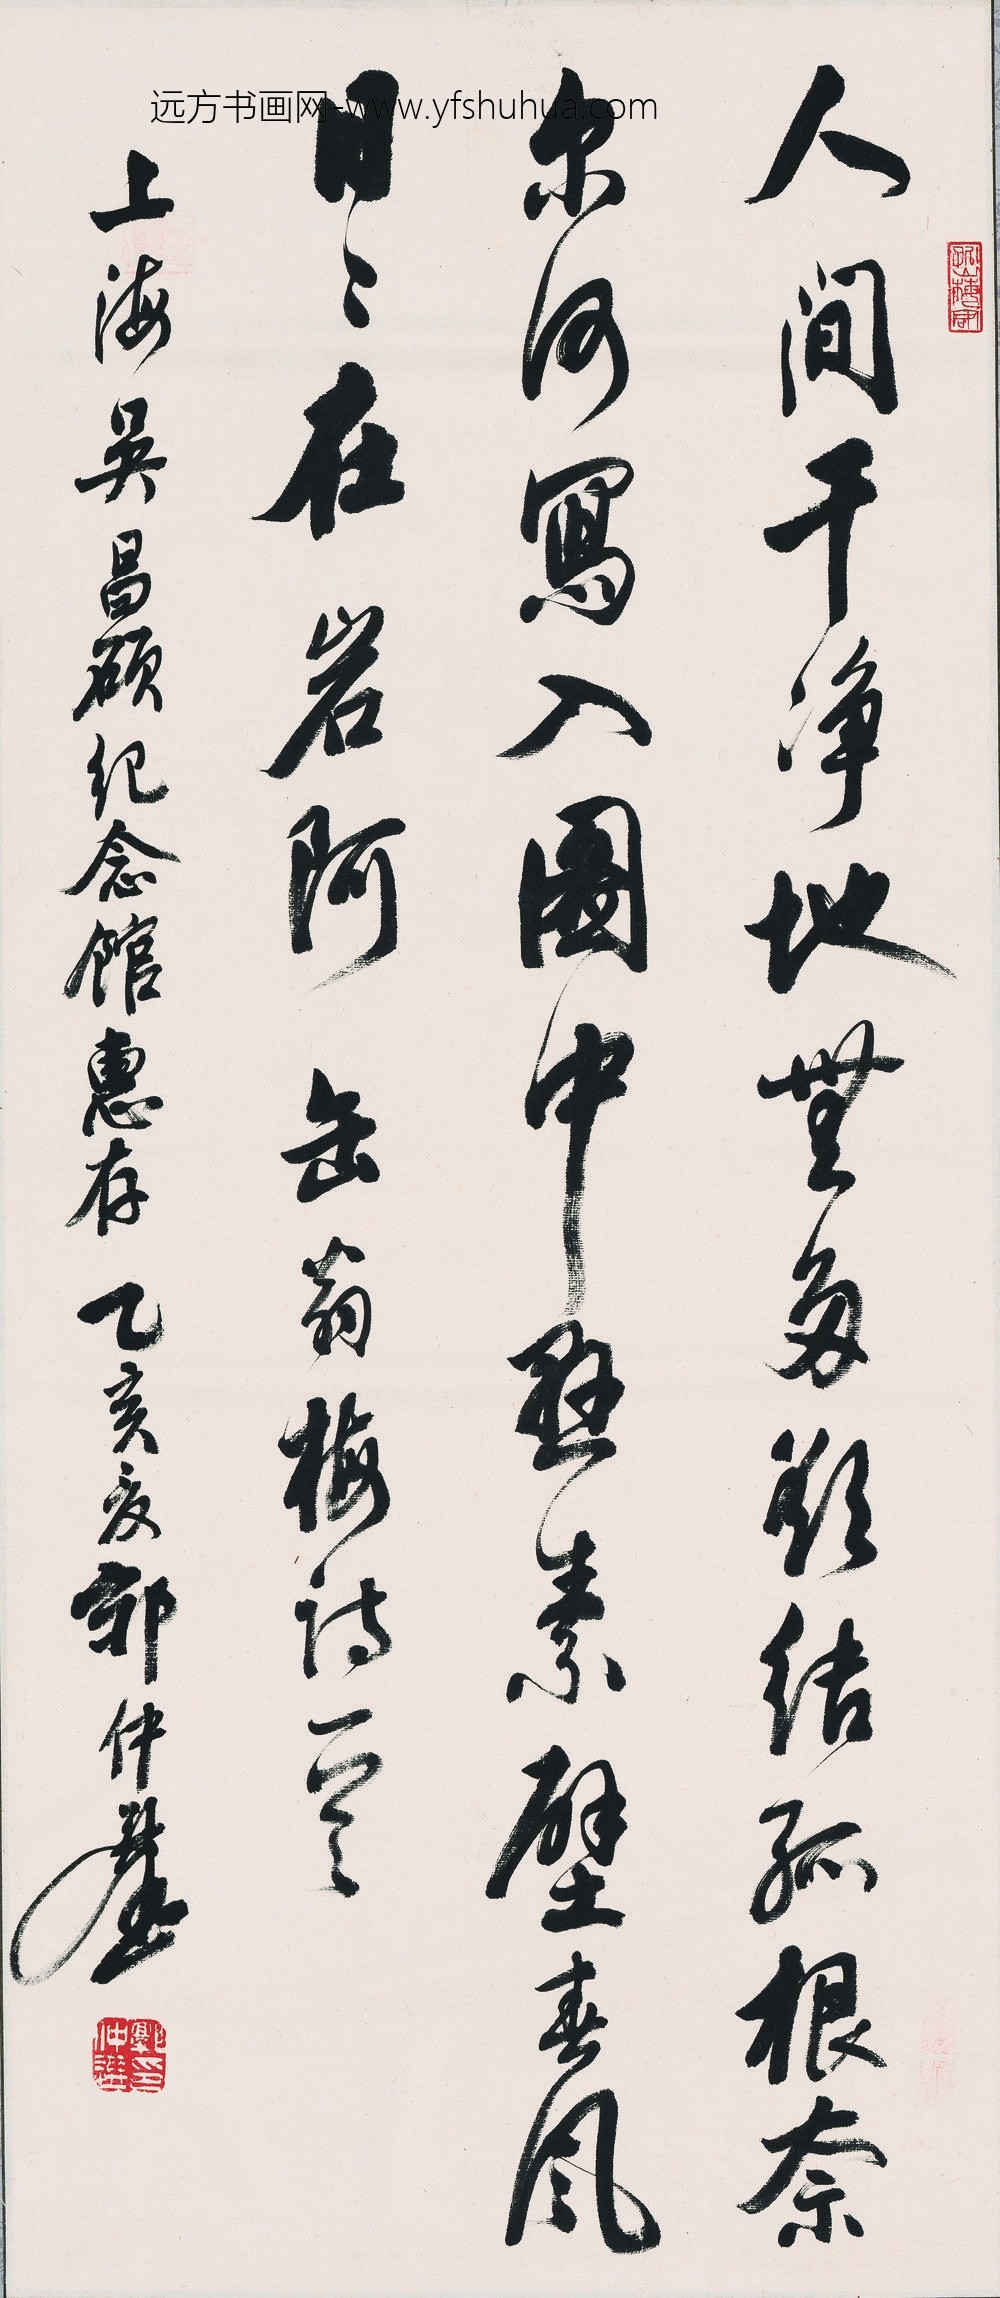 远方书画网-www.yfshuhua.com
人间干净地無多欲结孤根奈
尔何寫入圖中懸素壁春风
日日在岩阿 缶翁梅詩一首
上海吴昌硕纪念館惠存 乙亥夏 郭仲